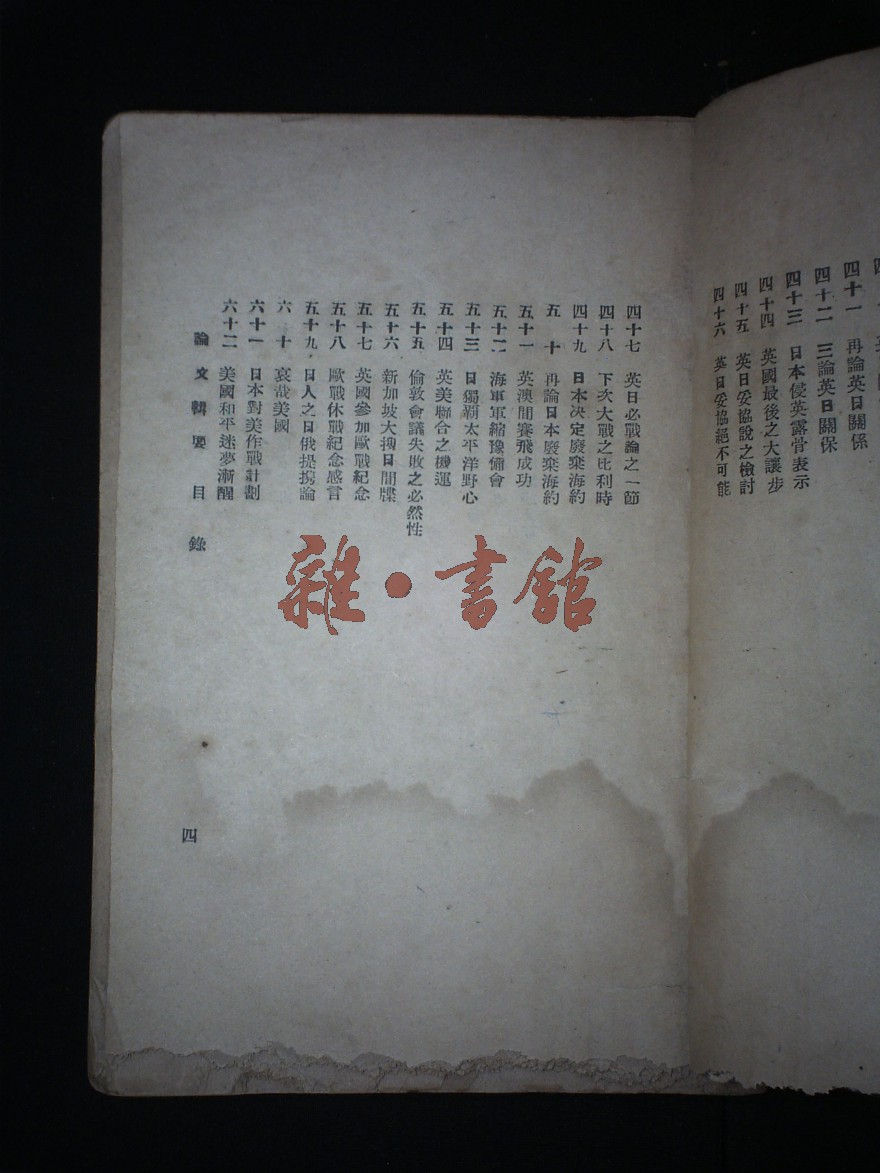 四十一 再論英日關係
四十二 三論英日關係
四十三 日本侵英露骨表示
四十四 英國最後之大讓步
四十五 英日妥協說之檢討
四十六 英日妥協絕不可能
四十七 英日必戰論之一節
四十八 下次大戰之比利時
四十九 日本决定廢棄海約
五十 再論日本廢棄海約
五十一 英澳間賽飛成功
五十二 海軍軍縮豫備會
五十三 日獨霸太平洋野心
五十四 英美聯合之機運
五十五 倫敦會議失敗之必然性
五十六 新加坡大搜日間牒
五十七 英國參加歐戰紀念
五十八 歐戰休戰紀念感言
五十九 日人之日俄提携論
六十 哀哉美國
六十一 日本對美作戰計劃
六十二 美國和平迷夢漸醒
論文輯要目錄
四
雜·書館